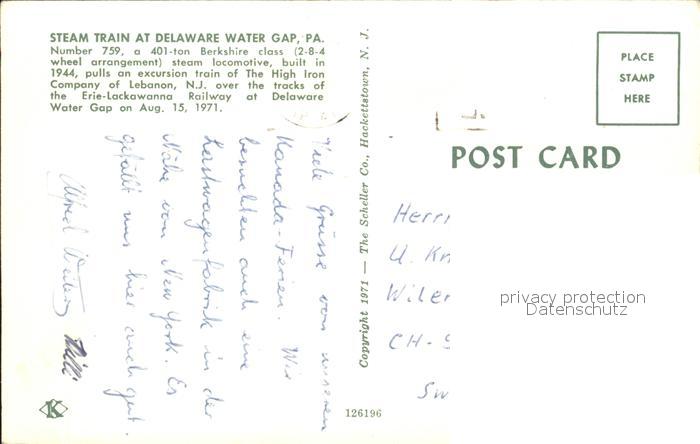 STEAM TRAIN AT DELAWARE WATER GAP, PA.
Number 759, a 401-ton Berkshire class (2-8-4
wheel arrangement) steam locomotive, built in
1944, pulls an excursion train of The High Iron
Company of Lebanon, N.J. over the tracks of
the Erie-Lackawanna Railway at Delaware
Water Gap on Aug. 15, 1971.
Viele Grüsse von unseren
Kanada-Ferien. Wir
besuchten auch eine
Lastwagenfabrik in der
Nähe von New York. Es
gefällt uns hier auch gut.
Alfred
Willi
K
Copyright 1971 — The Scheller Co., Hackettstown, N. J.
126196
PLACE
STAMP
HERE
POST CARD
Herr
U. Kn
Wiler
CH-
Sw
privacy protection
Datenschutz